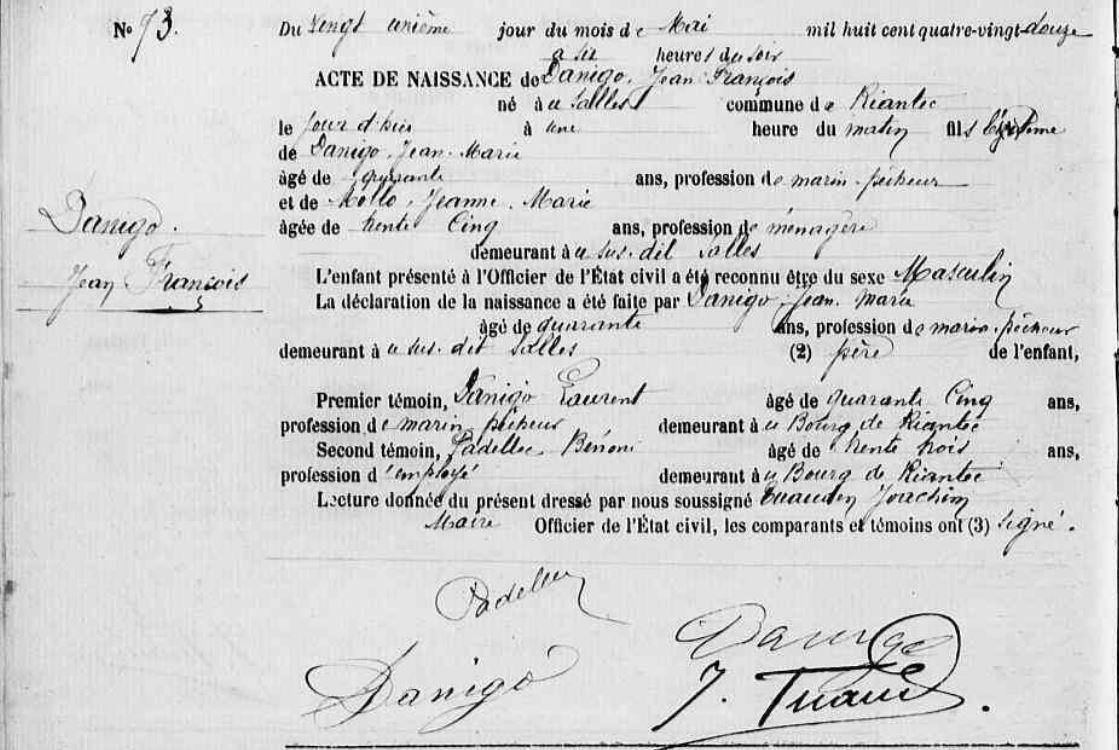 No 73. Du Vingt unième jour du mois de Mai mil huit cent quatre-vingt-douze
à six heures du soir
ACTE DE NAISSANCE de Danigo, Jean François
né à u Salles commune de Riantec
le jour d'hier à une heure du matin fils légitime
de Danigo, Jean-Marie
âgé de quarante ans, profession de marin-pêcheur
et de Mollo, Jeanne, Marie
âgée de trente Cinq ans, profession de ménagère
demeurant à u sus-dit Salles
Danigo.
Jean François
L'enfant présenté à l'Officier de l'État civil a été reconnu être du sexe Masculin
La déclaration de la naissance a été faite par Danigo, Jean, Marie
âgé de quarante ans, profession de marin-pêcheur
demeurant à u sus-dit Salles (2) père de l'enfant,
Premier témoin, Danigo Laurent âgé de quarante Cinq ans,
profession de marin pêcheur demeurant à u Bourg de Riantec
Second témoin, Padellec Bénoni âgé de trente trois ans,
profession d'employé demeurant à u Bourg de Riantec
Lecture donnée du présent dressé par nous soussigné Joachim
Maire Officier de l'État civil, les comparants et témoins ont (3) signé.
Padellec
Danigo
Danigo
J.